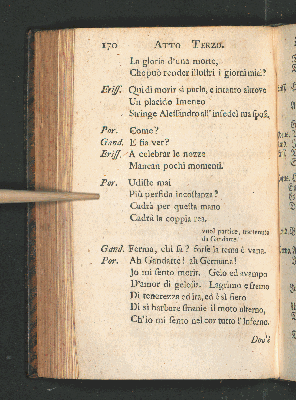 170 ATTO TERZO.
La gloria d'una morte,
Che può render illustri i giorni miei?
Eriss. Qui di morir si parla, e incanto altrove
Un placido Imeneo
Stringe Alessandro all'infedel tua sposa.
Por. Come?
Gand. E fia ver?
Eriss. A celebrar le nozze
Mancan pochi momenti.
Por. Udiste mai
Più perfida incostanza?
Cadrà per questa mano
Cadrà la coppia rea.
vuol partire, trattenuto
da Gandarte.
Gand. Ferma, chi sa? forse la tema è vana.
Por. Ah Gandarte! ah Germana!
Io mi sento morir. Gelo ed avvampo
D'amor di gelosia. Lagrimo e fremo
Di tenerezza ed ira, ed è sì fiero
Di sì barbare smanie il moto alterno,
Ch'io mi sento nel cor tutto l'Inferno.
Dov'è